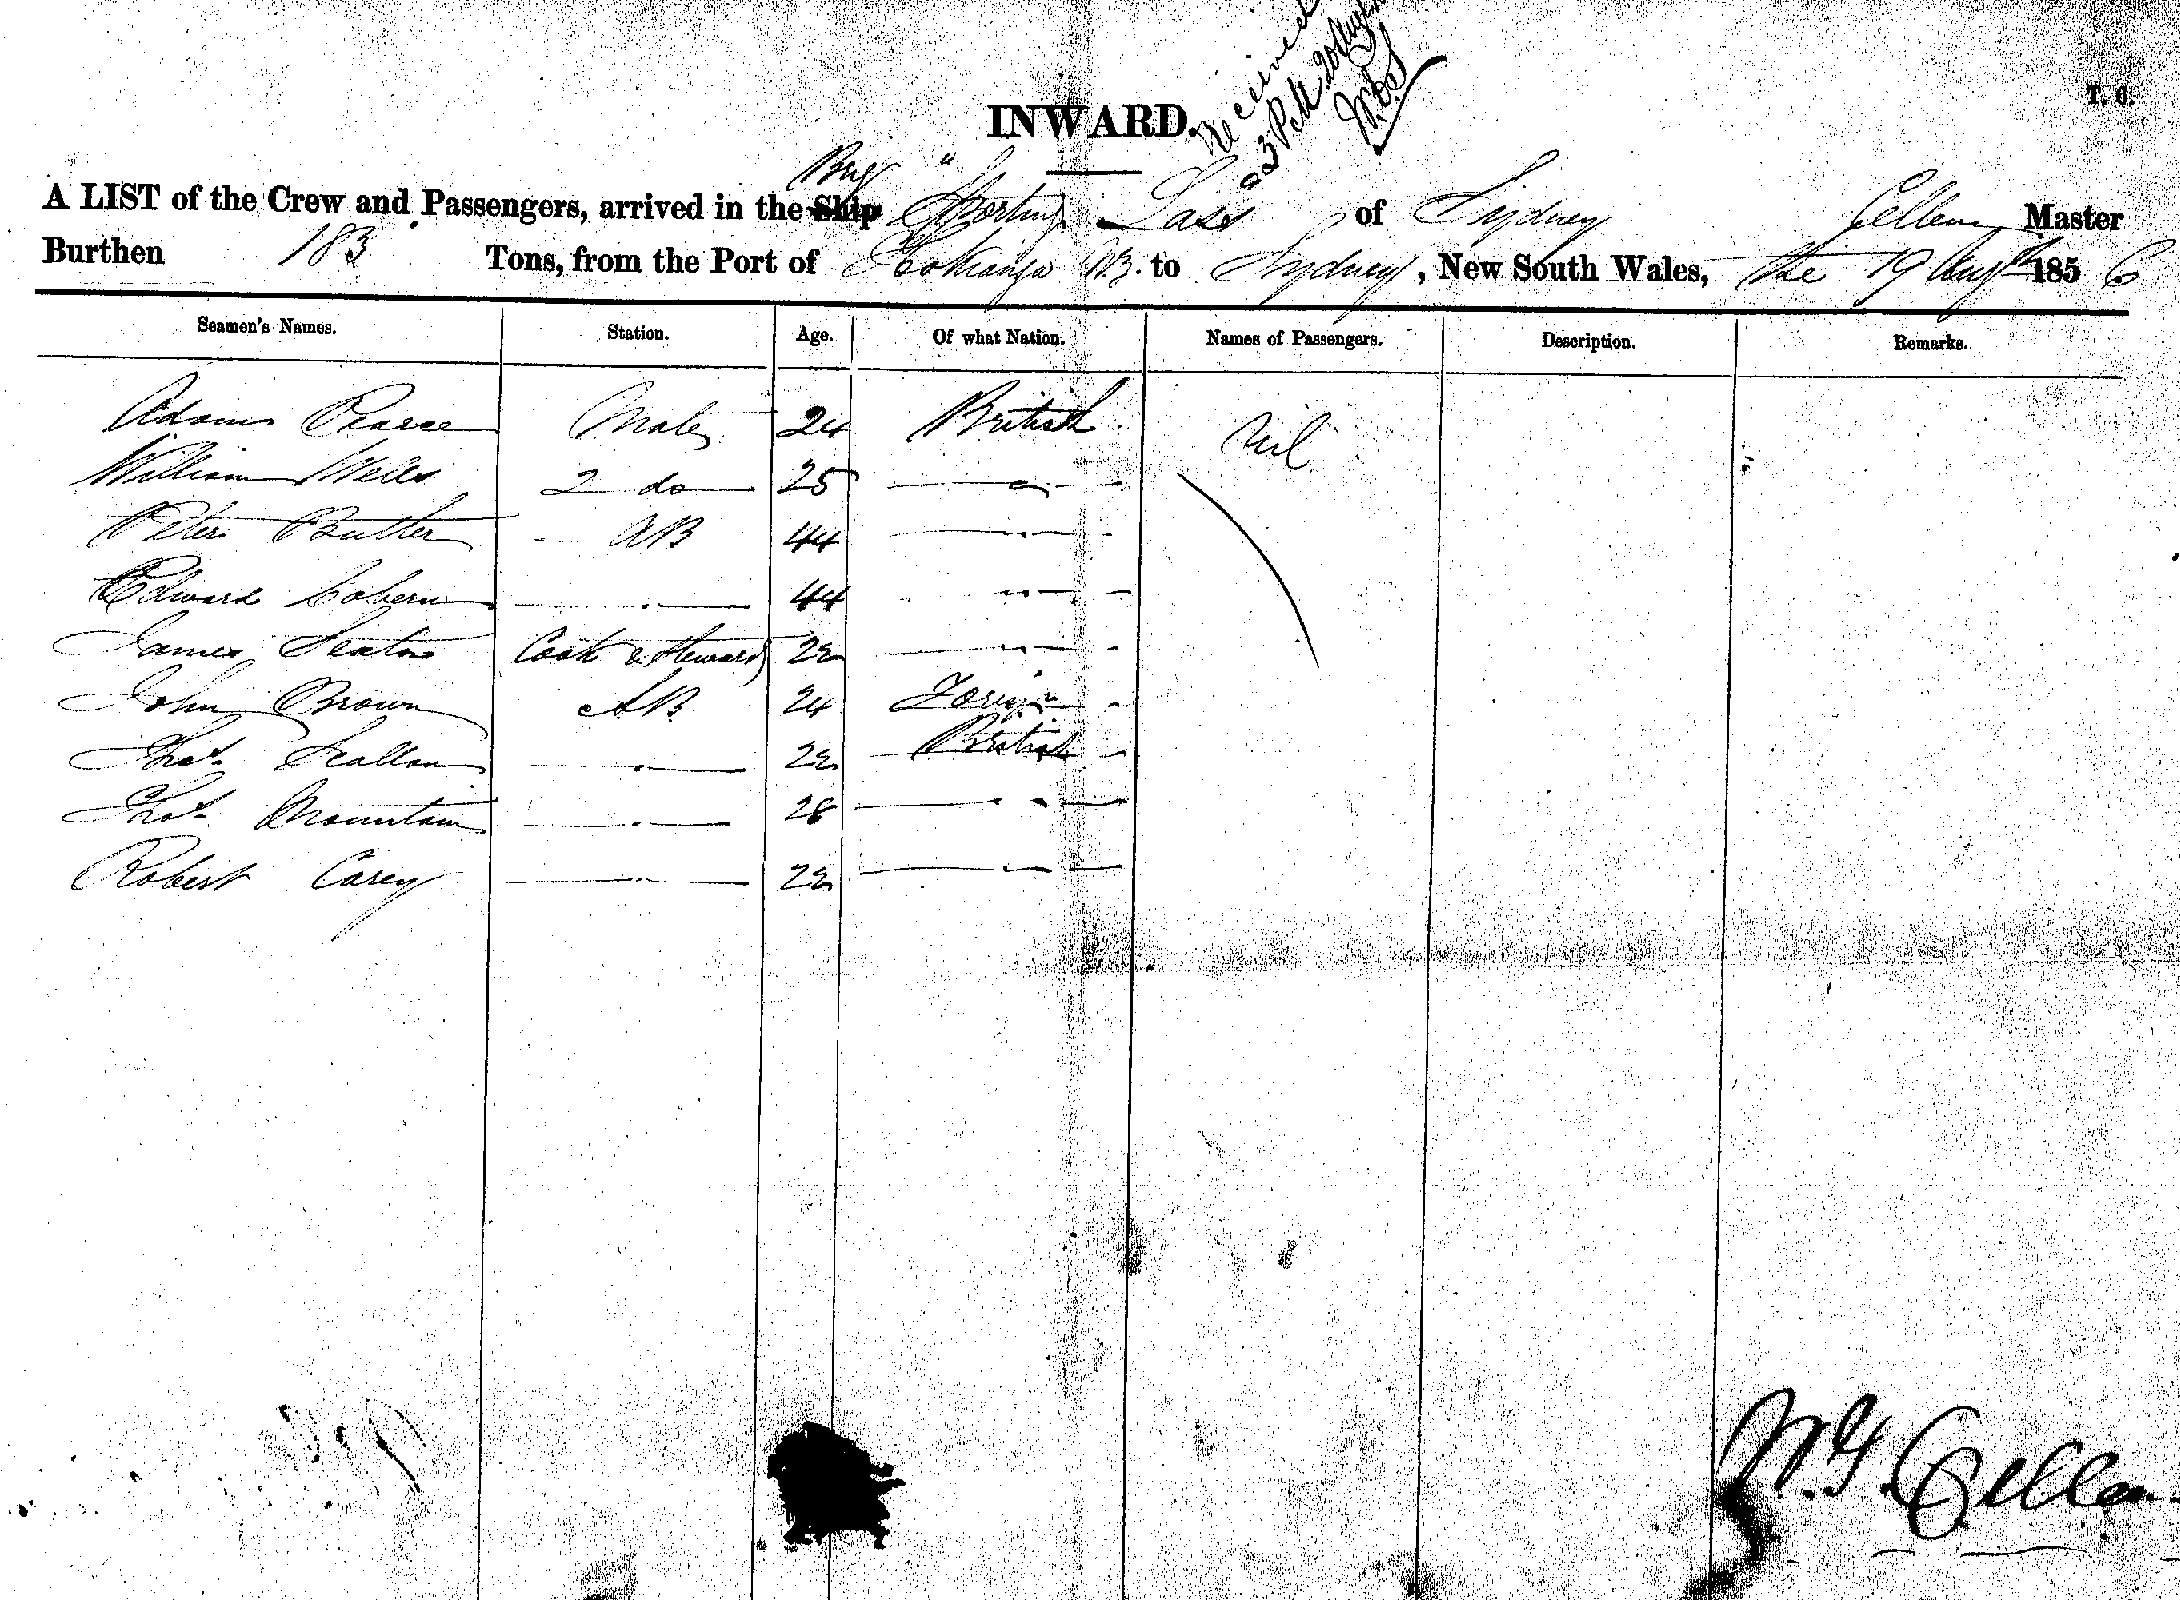 Received
a 3 P.M. 20 Augt
T. 6.
INWARD.
Brig "
A LIST of the Crew and Passengers, arrived in the Ship Sporting Lass of Sydney Cellem Master
Burthen 183 Tons, from the Port of Hokianga to Sydney, New South Wales, the 19 Augt 1856
Seamen's Names. Station. Age. Of what Nation. Names of Passengers. Description. Remarks.
Adam Pearce Mate 24 British Nil
William Wells 2 do 25 — " —
Peter Butler AB 44 — " —
Edward Cobern — " — 44 — " —
James Seaton Cook & Steward 22 — " —
John Brown AB 24 Foreign
Thos. Scallan — " — 22 British
Thos. Mountain — " — 28 — " —
Robert Carey — " — 22 — " —